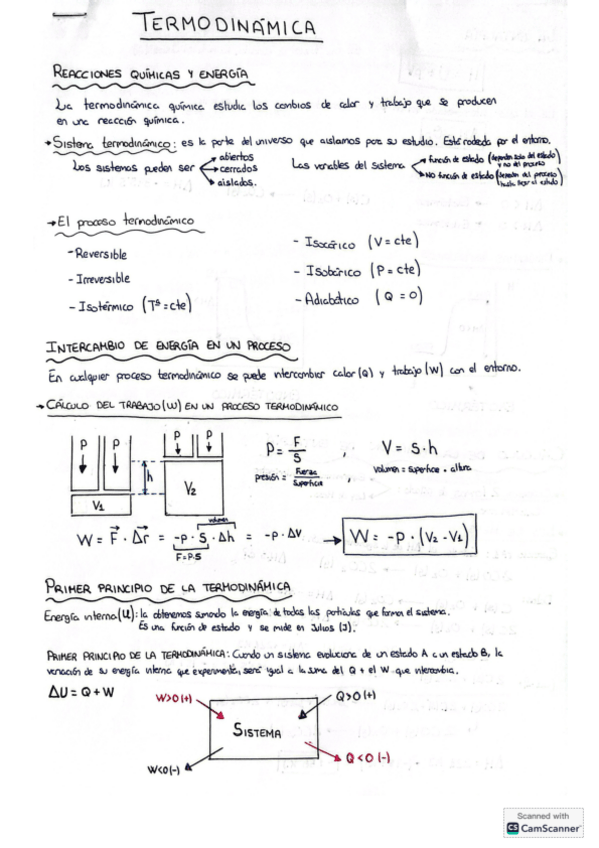 TERMODINÁMICA
REACCIONES QUÍMICAS Y ENERGÍA
La termodinámica química estudia los cambios de calor y trabajo que se producen
en una reacción química.
Sistema termodinámico: es la parte del universo que aislamos para su estudio. Está rodeada por el entorno.
Los sistemas pueden ser
abiertos
cerrados
aislados.
Las variables del sistema
función de estado (dependen solo del estado
y no del proceso)
NO función de estado (dependen del proceso
hasta llegar al estado)
→ El proceso termodinámico
- Reversible
- Irreversible
- Isotérmico (Tª = cte)
- Isocórico (V = cte)
- Isobárico (P = cte)
- Adiabático (Q = 0)
INTERCAMBIO DE ENERGÍA EN UN PROCESO
En cualquier proceso termodinámico se puede intercambiar calor (Q) y trabajo (W) con el entorno.
→ CÁLCULO DEL TRABAJO (W) EN UN PROCESO TERMODINÁMICO
P P
V1
P P
h
V2
P = F/S , V = S·h
presión = Fuerza/Superficie , volumen = superficie · altura
volumen
W = F⃗ · Δr⃗ = -P · S · Δh = -P · ΔV → W = -P · (V2 - V1)
F=P·S
PRIMER PRINCIPIO DE LA TERMODINÁMICA
Energía interna (U): la obtenemos sumando la energía de todas las partículas que forman el sistema.
Es una función de estado y se mide en Julios (J).
PRIMER PRINCIPIO DE LA TERMODINÁMICA: Cuando un sistema evoluciona de un estado A a un estado B, la
variación de su energía interna que experimenta, será igual a la suma del Q + el W que intercambia.
ΔU = Q + W
W>0 (+)
Q>0 (+)
SISTEMA
W<0 (-)
Q<0 (-)
Scanned with
CS CamScanner